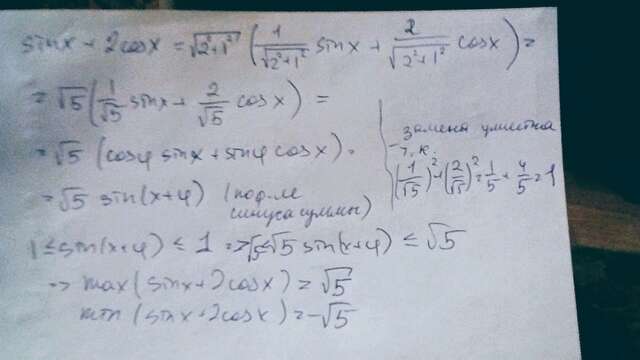 sinx + 2cosx = √2²+1² (1/√2²+1² sinx + 2/√2²+1² cosx) =
= √5 (1/√5 sinx + 2/√5 cosx) =
= √5 (cosφ sinx + sinφ cosx) =
= √5 sin(x+φ) (по ф-ле
синуса суммы)
замена уместна
т.к.
(1/√5)² + (2/√5)² = 1/5 + 4/5 = 1
1 ≤ sin(x+φ) ≤ 1 => √5 ≤ √5 sin(x+φ) ≤ √5
=> max(sinx+2cosx) = √5
min(sinx+2cosx) = -√5